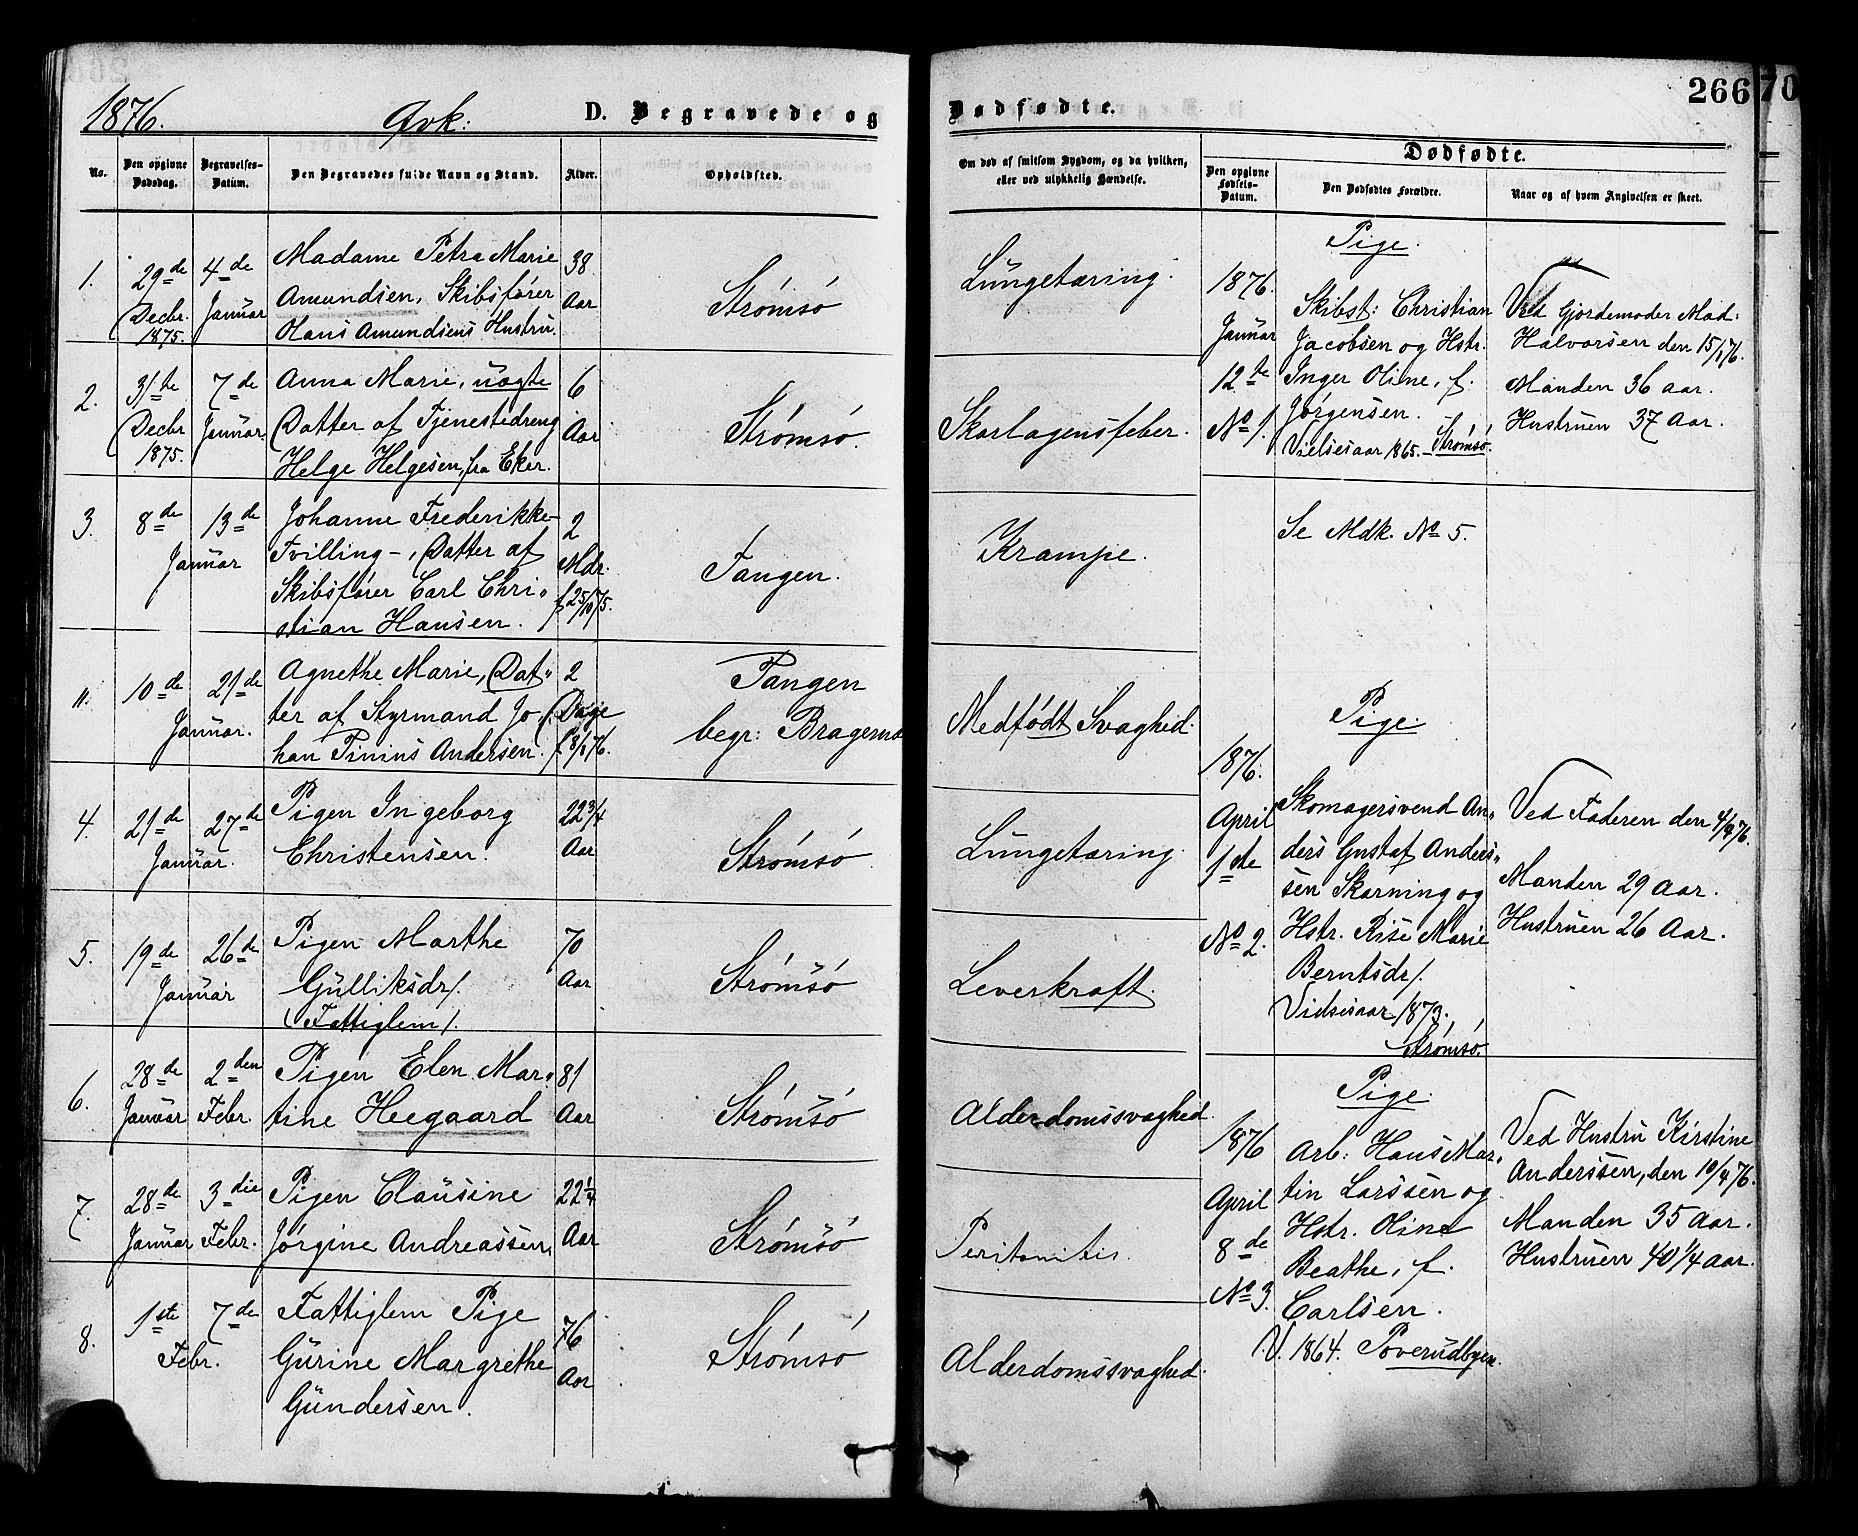 1876.
Qvk:
D. Begravede og
Dødfødte.
266
70
No.
Den opgivne Dødsdag.
Begravelses-Datum.
Den Begravedes fulde Navn og Stand.
Alder.
Opholdsted.
Om død af smitsom Sygdom, og da hvilken, eller ved ulykkelig Hændelse.
Dødfødte.
Den opgivne Fødsels-Datum.
Den Dødfødtes Forældre.
Naar og af hvem Angivelsen er skeet.
1.
29de Decbr. 1875.
4de Januar
Madame Petra Marie
Amundsen, Skibsfører
Hans Amundsens Hustru.
38 Aar
Strømsö
Lungetæring.
2.
31te Decbr 1875.
7de Januar.
Anna Marie, uægte
Datter af Tjenestedreng
Helge Helgesen, fra Eker.
6 Aar
Strømsö.
Skarlagensfeber.
3.
8de 13de
Januar
Johanne Frederikke
Tvilling-, Datter af
Skibsfører Carl Chri-
stian Hansen.
2 Mdr.
f 25/10 75.
Tangen.
Krampe.
".
10de 21de
Januar.
Agnethe Marie, Dat-
ter af Styrmand Jo-
han Pinius Andersen.
2 Dage
f 8/1 76.
Tangen
begr: Bragernæ
Medfødt Svaghed.
4.
21de 27de
Januar.
Pigen Ingeborg
Christensen.
22 3/4 Aar
Strømsö.
Lungetæring.
5.
19de 26de
Januar
Pigen Marthe
Gulliksdr/.
(Fattiglem/.
70 Aar
Strømsö
Leverkraft.
6.
28de Januar
2den Febr.
Pigen Elen Mar-
tine Heegaard
81 Aar
Strømsö
Alderdomssvaghed.
7.
28de Januar
3die Febr.
Pigen Clausine
Jørgine Andreassen
22 1/4 Aar
Strømsö
Peritonitis.
8.
1ste 7de
Febr.
Fattiglem Pige
Gurine Margrethe
Gundersen.
76 Aar
Strømsö
Alderdomssvaghed.
1876.
Januar
12te
No 1.
Pige.
Skibst: Christian
Jacobsen og Hstr.
Inger Oline, f.
Jørgensen.
Vielsesaar 1865. Strømsö.
Ved Gjordemoder Mad:
Halvorsen den 15/1 76.
Manden 36 aar.
Hustruen 37 Aar.
Se Mdk. No 5.
1876.
April
1ste
No 2.
Pige.
Skomagersvend An-
ders Gustaf Anders-
sen Skarning og
Hstr. Rise Marie
Berntsdr/.
Vielsesaar 1873.
Strømsö.
Ved Faderen den 4/4 76.
Manden 29 Aar.
Hustruen 26 Aar.
1876
April
8de
No 3.
Pige.
Arb: Hans Mar-
tin Larssen og
Hstr. Oline
Beathe, f.
Carlsen.
V. 1864. Poverudbyen.
Ved Hustru Kirstine
Anderssen, den 10/4 76.
Manden 35 Aar.
Hustruen 40 1/4 aar.